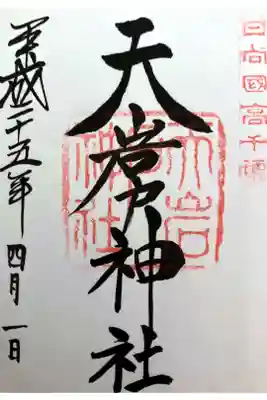 日向國高千穂
天岩戸神社
天岩戸神社
平成二十五年四月一日